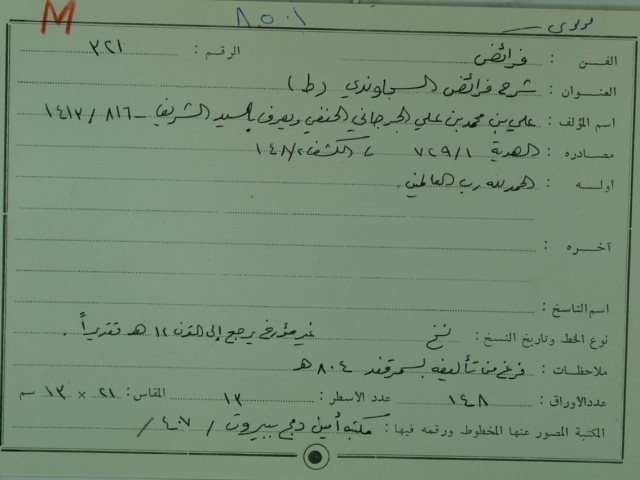 M ٨٥٠١
الفن : فرائض الرقم : ٣٢١
العنوان : شرح فرائض السجاوندي (ط)
اسم المؤلف : علي بن محمد بن علي الجرجاني الحنفي ويعرف بالسيد الشريف - ٨١٦ / ١٤١٣
مصادره : الهدية ٧٢٩/١ الكشف ١٤٨/٢
أوله : الحمد لله رب العالمين .
آخره :
اسم الناسخ :
نوع الخط وتاريخ النسخ : نسخ غير مؤرخ يرجع إلى القرن ١٢ هـ تقديراً .
ملاحظات : فرغ من تأليفه بسمرقند ٨٠٤ هـ
عدد الأوراق : ١٤٨ عدد الأسطر : ١٣ المقاس : ٢١ × ١٣ سم
المكتبة المصور عنها المخطوط ورقمه فيها : مكتبة أمين دمج ببيروت / ٤٠٧ /